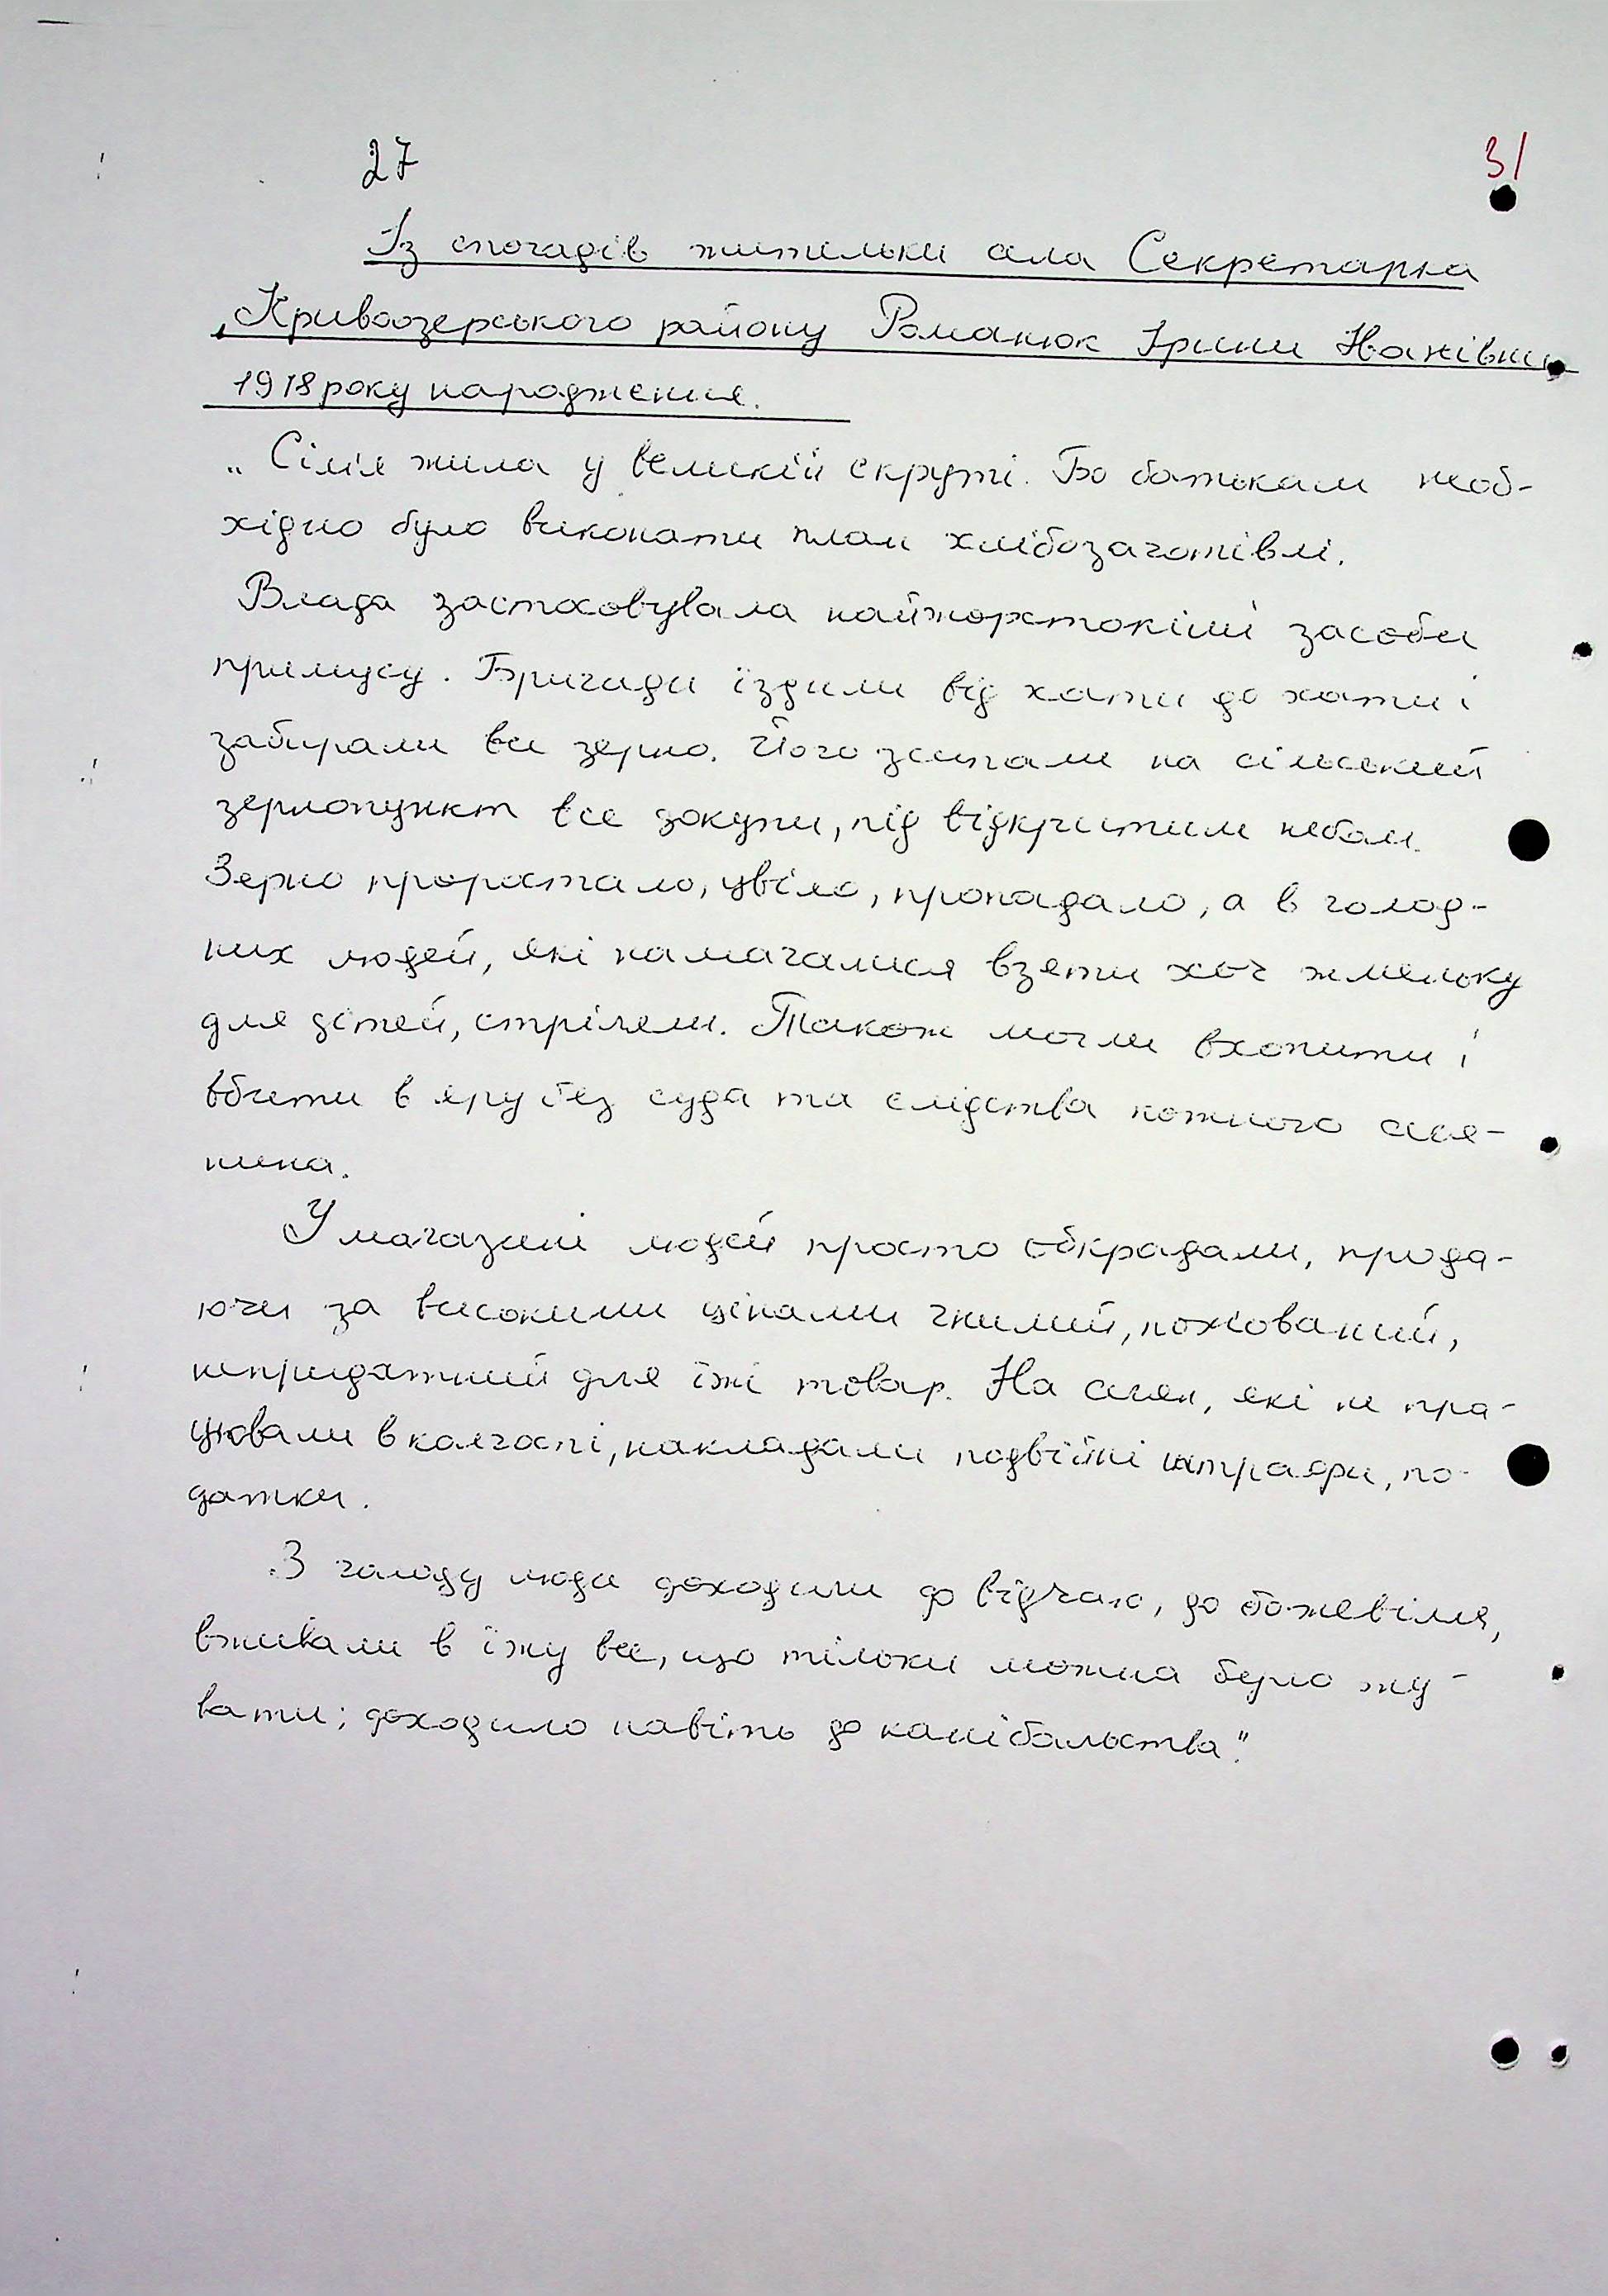 27
31
Із спогадів жительки села Секретарка
Кривоозерського району Романюк Ірини Іванівни
1918 року народження.
„ Сім'я жила у великій скруті. Бо батькам необ-
хідно було виконати план хлібозаготівлі.
Влада застосовувала найжорстокіші засоби
примусу. Бригади їздили від хати до хати і
забирали все зерно. Його зсипали на сільський
зернопункт все докупи, під відкритим небом.
Зерно проростало, цвіло, пропадало, а в голод-
них людей, які намагалися взяти хоч жменьку
для дітей, стріляли. Також могли вхопити і
вбити в яру без суда та слідства кожного селя-
нина.
У магазині людей просто обкрадали, прода-
ючи за високими цінами гнилий, похований,
непридатний для їжі товар. На селян, які не пра-
цювали в колгоспі, накладали подвійні штрафи, по-
датки.
З голоду люди доходили до відчаю, до божевілля,
вживали в їжу все, що тільки можна було жу-
вати; доходило навіть до канібальства."